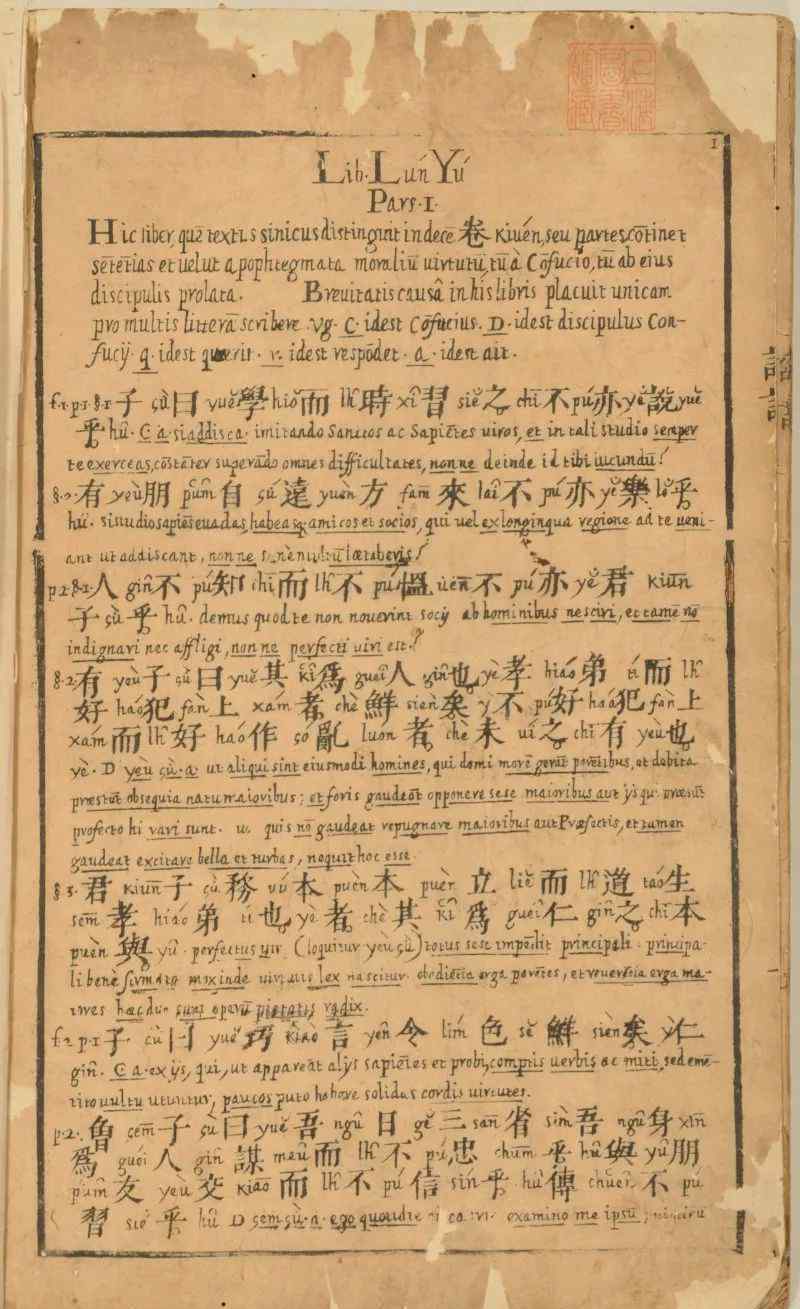 1
Lib. Lun Yú
Pars. I.
Hic liber, quē textus sinicus distingint in decē 卷 Kiuén, seu partes, cōtinet
sētētias et uelut apophtegmata moraliū uirtutū, tū à Cōfucio, tū ab eius
discipulis prolata. Breuitatis causâ in his libris placuit unicam
pro multis litterā scribere. Vg. C. idest Cōfucius. D. idest discipulus Con-
fucij. q. idest querit. r. idest respōdet. a. idem ait.
f.1. p.1. §.1. 子 çù 曰 yuĕ 學 hiŏ 而 lh̑ 時 xî 習 siĕ 之 chī 不 pú 亦 yĕ 說 yuĕ
乎 hû. C a. si addisca imitando Sanctos ac Sapiētes uiros, et in tali studio semper
te exerceas, cōstāter superādo omnes difficultates, nonne deinde id tibi iucundū!
§.2. 有 yeù 朋 pûm 自 çú 遠 yuèn 方 fam 來 laî 不 pú 亦 yĕ 樂 lŏ 乎
hû. si studio sapiēs euadas, habeasq. amicos et socios, qui uel ex longinqua regione ad te ueni-
ant ut addiscant, nonne laetaberis!
p.2. §.1. 人 gin̂ 不 pú 知 chī 而 lh̑ 不 pú 慍 uén 不 pú 亦 yĕ 君 kiūn
子 çù 乎 hû. demus quod te non nouerint socij ab hominibus nesciri, et tamē nō
indignari nec affligi, nonne perfecti uiri est?
§.2. 有 yeù 子 çù 曰 yuĕ 其 kî 爲 gueî 人 gin̂ 也 yè 孝 hiáo 弟 tí 而 lh̑
好 háo 犯 fán 上 xám 者 chè 鮮 sièn 矣 ỳ 不 pú 好 háo 犯 fán 上
xám 而 lh̑ 好 háo 作 çó 亂 luón 者 chè 未 uí 之 chī 有 yeù 也
yè. D yeù çù. a. ut aliqui sint eiusmodi homines, qui domi morē gerūt parētibus, et debita
præstēt obsequia natu maioribus; et foris gaudeāt opponere sese maioribus aut ijs qui præsūt
profecto hi rari sunt. ut quis nō gaudeat repugnare maioribus aut Præfectis, et tamen
gaudeat excitare bella et turbas, nequit hoc esse.
§.3. 君 kiūn 子 çù 務 vú 本 puèn 本 puèn 立 liĕ 而 lh̑ 道 táo 生
sem̄ 孝 hiáo 弟 tí 也 yè 者 chè 其 kî 爲 gueî 仁 gin̂ 之 chī 本
puèn 與 yû. perfectus uir (loquitur yeù çù) totus sese impēdit principali. principa-
li benè firmato mox inde uirtutis lex nascitur. obediētia erga parētes, et reuerētia erga ma-
iores hæc duo sunt operū pietatis radix.
f.2. p.1. 子 çù 曰 yuĕ 巧 kiào 言 yên 令 lím 色 sĕ 鮮 sièn 矣 ỳ 仁
gin̂. C a. ex ijs, qui, ut appareāt alijs sapiētes et probi, comptis uerbis ac miti, sed emē-
tito uultu utuntur, paucos puto habere solidas cordis uirtutes.
p.2. 曾 çem̄ 子 çù 曰 yuĕ 吾 ngû 日 gĕ 三 san̄ 省 sìm 吾 ngû 身 xin̄
爲 guéi 人 gin̂ 謀 meû 而 lh̑ 不 pú 忠 chum̄ 乎 hû 與 yû 朋
pûm 友 yeù 交 kiāo 而 lh̑ 不 pú 信 sín 乎 hû 傳 chuên 不 pú
習 siĕ 乎 hû D çem çù. a. ego quotidie examino me ipsū;